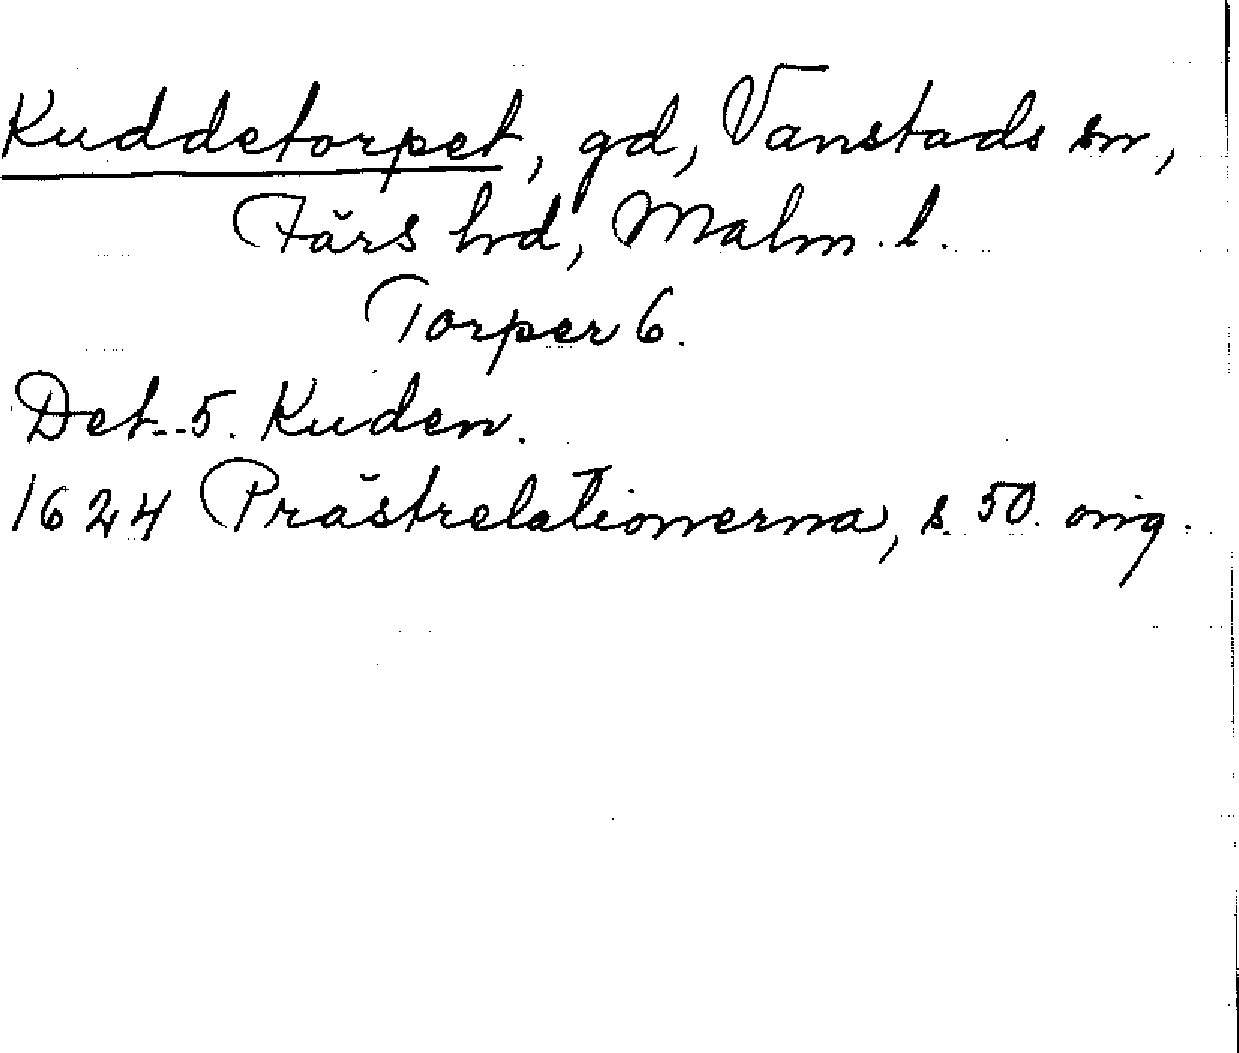 Kuddetorpet, gd, Vanstads sn,
Färs hd, Malm. l.
Torper 6.
Det. 5. Kuden.
1624 Prästrelationerna, s. 50. orig.